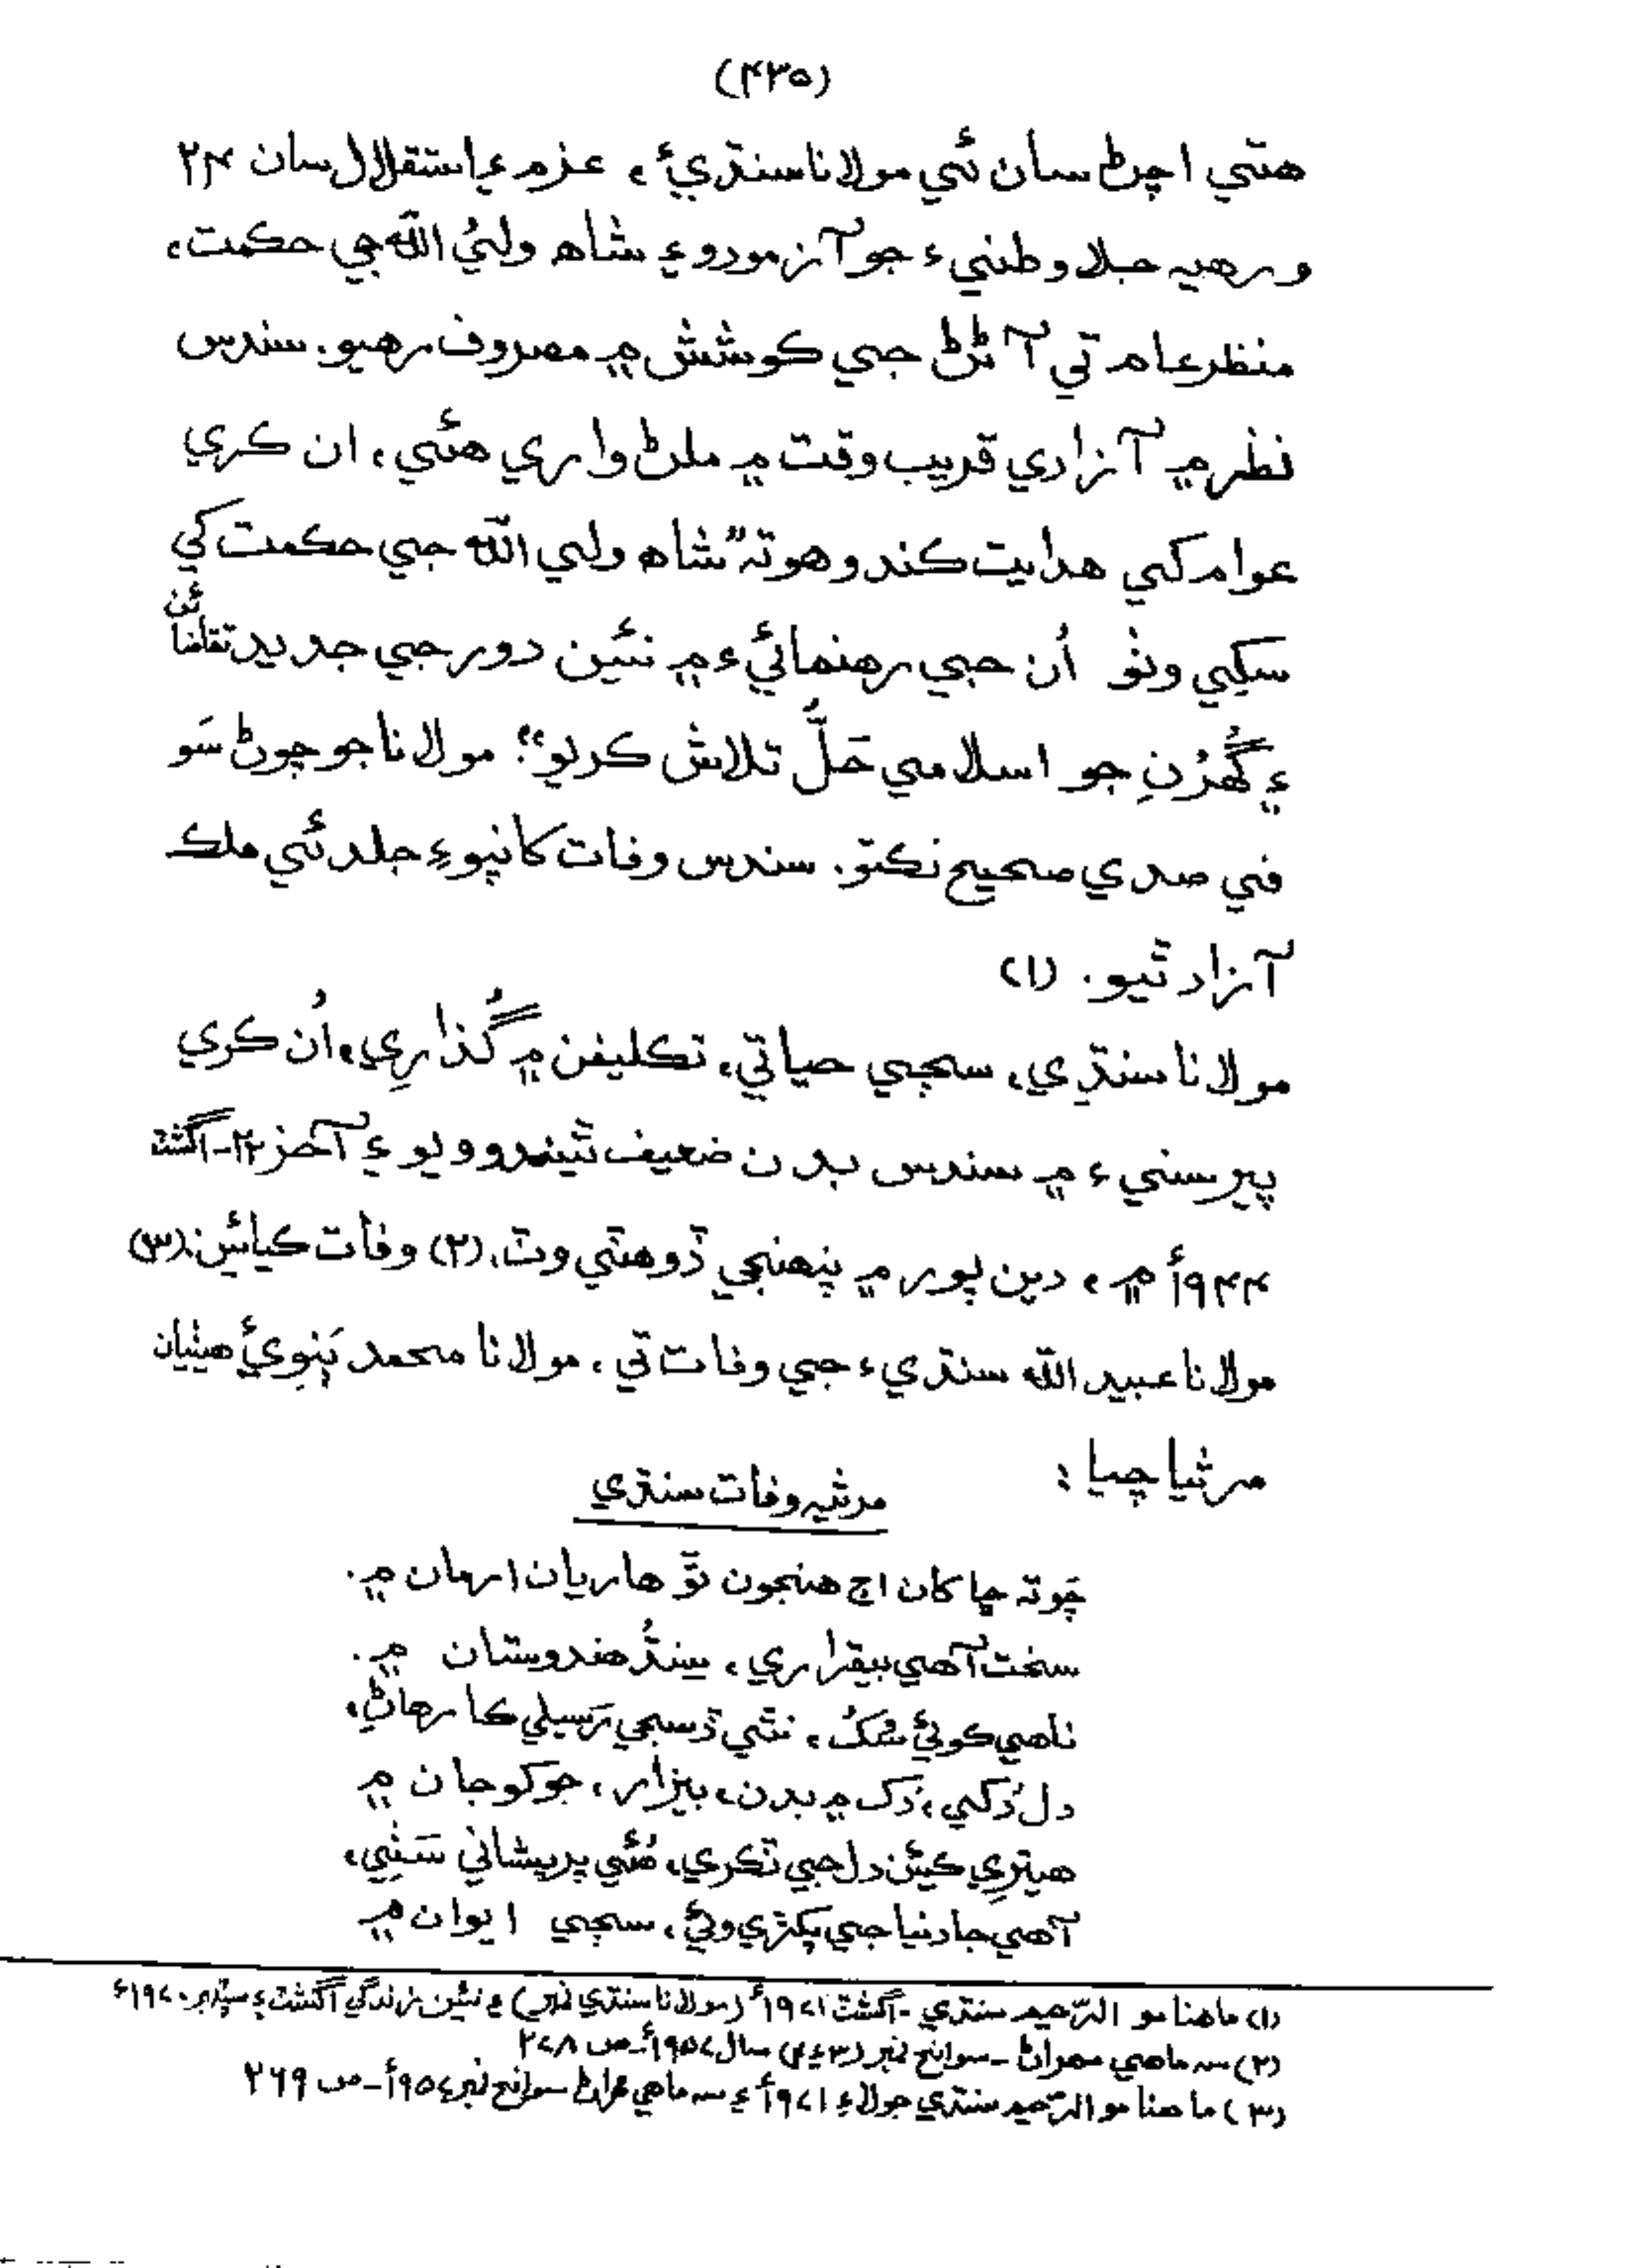 (۴۳۵)
هتي اچڻ سان ئي مولانا سنڌيءَ، عزم ۽ استقلال سان ۲۴
ورهيه جلاوطنيءَ جو آزمودو ۽ شاھ وليُ الله جي حڪمت،
منظرعام تي آڻڻ جي ڪوشش ۾ مصروف رهيو. سندس
نظر ۾ آزادي قريب وقت ۾ ملڻ واري هئي، ان ڪري
عوام کي هدايت ڪندو هو تہ ”شاھ ولي الله جي حڪمت کي
سکي وٺو اُن جي رهنمائيءَ ۾ نئين دور جي جديد تقاضائن
۽ گهُرُنِ جو اسلامي حَلُّ تلاش ڪريو“ مولانا جو چوڻ سَو
في صدي صحيح نڪتو. سندس وفات کانپوءِ جلد ئي ملڪ
آزاد ٿيو. (۱)
مولانا سنڌي، سڄي حياتي، تڪليفن ۾ گُذارِي، اُن ڪري
پيرسنيءَ ۾ سندس بدن ضعيف ٿيندو ويو ۽ آخر ۲۲-آگسٽ
۱۹۴۴ع ۾، دين پور ۾ پنهنجي ڏوهٽي وٽ، (۲) وفات ڪيائين. (۳)
مولانا عبيد الله سنڌيءَ جي وفات تي، مولانا محمد پَنوِيءَ هيٺيان
مرثيا چيا:
مرثيہ وفات سنڌي
چَو تہ ڇا کان اڄ هنجون ٿو هاريان ارمان ۾.
سخت آهي بيقراري، سِنڌُ هندوستان ۾.
ناهي ڪوئي سُکُ، نٿي ڏسجي رَسيلي ڪا رهاڻِ،
دل دُکي، ڏک ۾ بدن، بيزار، جوکو جان ۾
هيتري ڪيئن دل جي ٽڪري، هُئي پريشاني سَٺِي،
آهي جا دنيا جي پکڙي وئي، سڄي ايوان ۾
(۱) ماهنامو الرّحيم سنڌي - آگسٽ ۱۹۷۱ع (مولانا سنڌي نمبر) ۽ نئين زندگي آگسٽ ۽ سپٽمبر ۱۹۷۰ع
(۲) سہ ماهي مهراڻ - سوانح نمبر (۳ ۽ ۴) سال ۱۹۵۷ع - ص ۲۷۸
(۳) ماهنامو الرّحيم سنڌي جولاءِ ۱۹۷۱ع ۽ سہ ماهي مهراڻ سوانح نمبر ۱۹۵۷ع - ص ۲۶۹